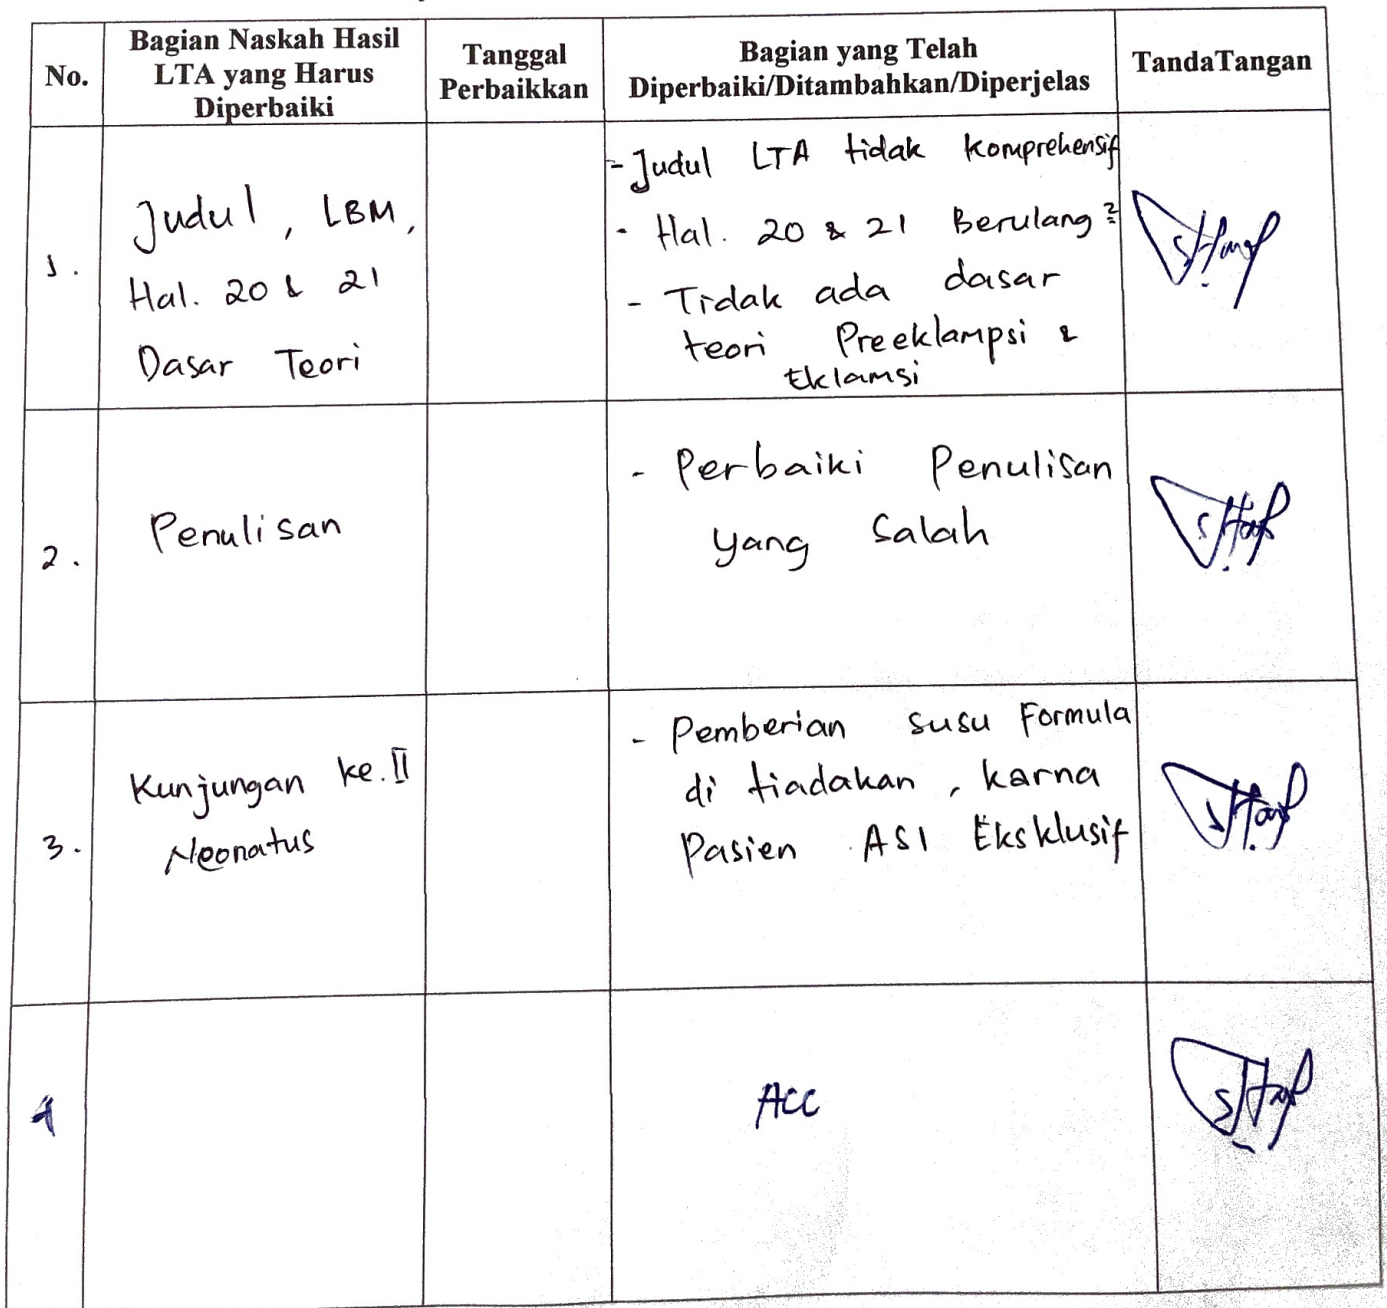 No.
Bagian Naskah Hasil
LTA yang Harus
Diperbaiki
Tanggal
Perbaikkan
Bagian yang Telah
Diperbaiki/Ditambahkan/Diperjelas
TandaTangan
1.
Judul, LBM,
Hal. 20 & 21
Dasar Teori
- Judul LTA tidak komprehensif
- Hal. 20 & 21 Berulang²
- Tidak ada dasar
teori Preeklampsi &
Eklamsi
2.
Penulisan
- Perbaiki Penulisan
yang Salah
3.
Kunjungan ke.II
Neonatus
- Pemberian susu Formula
di tiadakan, karna
Pasien ASI Eksklusif
4
ACC